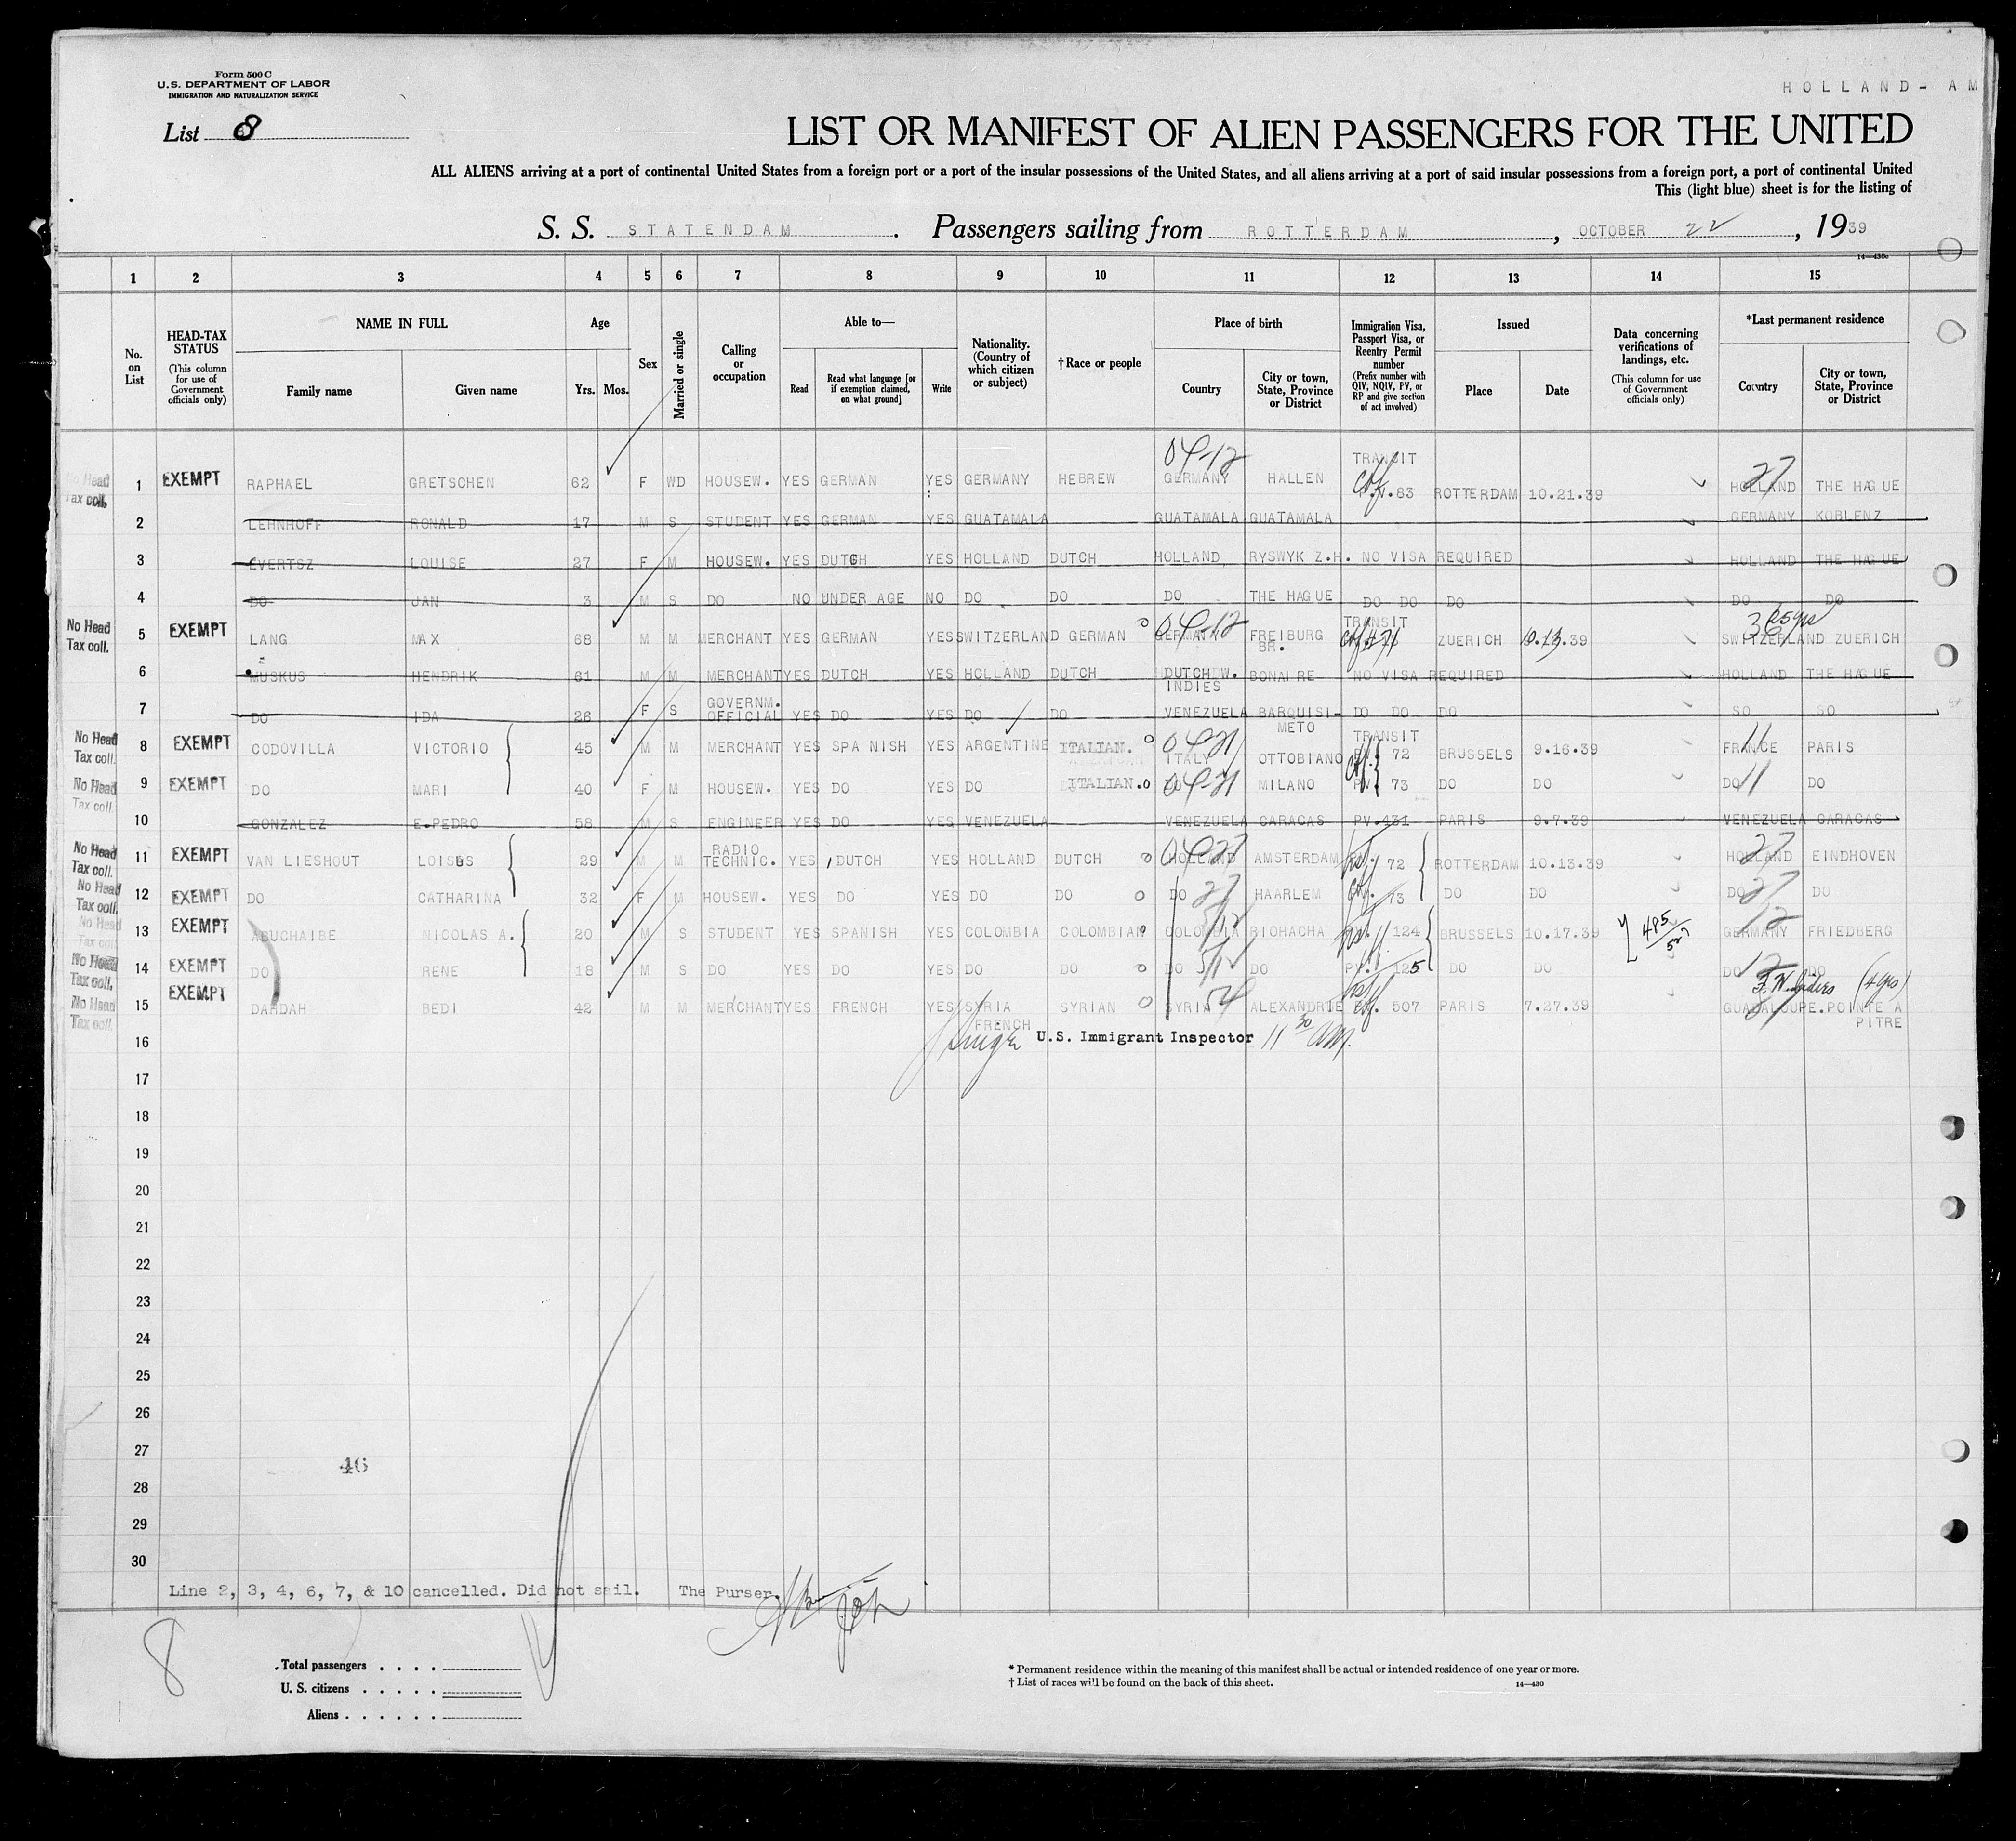 Form 500 C
U.S. DEPARTMENT OF LABOR
IMMIGRATION AND NATURALIZATION SERVICE
HOLLAND- AM
List 8
LIST OR MANIFEST OF ALIEN PASSENGERS FOR THE UNITED
ALL ALIENS arriving at a port of continental United States from a foreign port or a port of the insular possessions of the United States, and all aliens arriving at a port of said insular possessions from a foreign port, a port of continental United
This (light blue) sheet is for the listing of
S. S. STATENDAM. Passengers sailing from ROTTERDAM, OCTOBER 22, 1939
14—430c
1 2 3 4 5 6 7 8 9 10 11 12 13 14 15
No. on List
HEAD-TAX STATUS (This column for use of Government officials only)
NAME IN FULL
Family name Given name
Age
Yrs. Mos.
Sex
Married or single
Calling or occupation
Able to—
Read Read what language [or if exemption claimed, on what ground] Write
Nationality. (Country of which citizen or subject)
† Race or people
Place of birth
Country City or town, State, Province or District
Immigration Visa, Passport Visa, or Reentry Permit number (Prefix number with QIV, NQIV, PV, or RP and give section of act involved)
Issued
Place Date
Data concerning verifications of landings, etc. (This column for use of Government officials only)
*Last permanent residence
Country City or town, State, Province or District
No Head Tax coll. 1 EXEMPT RAPHAEL GRETSCHEN 62 F WD HOUSEW. YES GERMAN YES GERMANY HEBREW 04-12 GERMANY HALLEN TRANSIT P.V.83 ROTTERDAM 10.21.39 27 HOLLAND THE HAGUE
2 LEHNHOFF RONALD 17 M S STUDENT YES GERMAN YES GUATAMALA GUATAMALA GUATAMALA GERMANY KOBLENZ
3 EVERTSZ LOUISE 27 F M HOUSEW. YES DUTCH YES HOLLAND DUTCH HOLLAND RYSWYK Z.H. NO VISA REQUIRED HOLLAND THE HAGUE
4 DO JAN 3 M S DO NO UNDER AGE NO DO DO DO THE HAGUE DO DO DO DO DO
No Head Tax coll. 5 EXEMPT LANG MAX 68 M M MERCHANT YES GERMAN YES SWITZERLAND GERMAN 04-12 GERMANY FREIBURG BR. TRANSIT ZUERICH 10.13.39 36 SWITZERLAND ZUERICH
6 MUSKUS HENDRIK 61 M M MERCHANT YES DUTCH YES HOLLAND DUTCH DUTCH W. INDIES BONAIRE NO VISA REQUIRED HOLLAND THE HAGUE
7 DO IDA 26 F S GOVERNM. OFFICIAL YES DO YES DO DO VENEZUELA BARQUISI-METO DO DO DO SO SO
No Head Tax coll. 8 EXEMPT CODOVILLA VICTORIO 45 M M MERCHANT YES SPANISH YES ARGENTINE ITALIAN. 04-21 ITALY OTTOBIANO TRANSIT 72 BRUSSELS 9.16.39 11 FRANCE PARIS
No Head Tax coll. 9 EXEMPT DO MARI 40 F M HOUSEW. YES DO YES DO ITALIAN. 04-21 MILANO PV. 73 DO DO DO 11 DO
10 GONZALEZ E.PEDRO 58 M S ENGINEER YES DO YES VENEZUELA VENEZUELA CARACAS PV.431 PARIS 9.7.39 VENEZUELA CARACAS
No Head Tax coll. 11 EXEMPT VAN LIESHOUT LOISUS 29 M M RADIO TECHNIC. YES DUTCH YES HOLLAND DUTCH 04-27 HOLLAND AMSTERDAM 72 ROTTERDAM 10.13.39 27 HOLLAND EINDHOVEN
No Head Tax coll. 12 EXEMPT DO CATHARINA 32 F M HOUSEW. YES DO YES DO DO DO 27 HAARLEM 73 DO DO DO 27 DO
No Head Tax coll. 13 EXEMPT ABUCHAIBE NICOLAS A. 20 M S STUDENT YES SPANISH YES COLOMBIA COLOMBIAN COLOMBIA RIOHACHA 124 BRUSSELS 10.17.39 485 12 GERMANY FRIEDBERG
No Head Tax coll. 14 EXEMPT DO RENE 18 M S DO YES DO YES DO DO DO DO PV. 125 DO DO DO 12 DO
No Head Tax coll. 15 EXEMPT DAHDAH BEDI 42 M M MERCHANT YES FRENCH YES SYRIA FRENCH SYRIAN SYRIA ALEXANDRIE 507 PARIS 7.27.39 F. W. Indies (4 yrs) GUADALOUPE. POINTE A PITRE
16 U.S. Immigrant Inspector 11 30 AM.
17
18
19
20
21
22
23
24
25
26
27
46
28
29
30
Line 2, 3, 4, 6, 7, & 10 cancelled. Did not sail. The Purser.
8
Total passengers
U. S. citizens
Aliens
* Permanent residence within the meaning of this manifest shall be actual or intended residence of one year or more.
† List of races will be found on the back of this sheet.
14—430